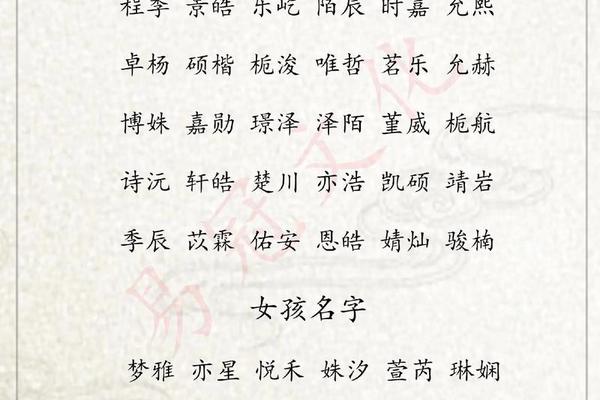 程季 景皓 乐屹 陌辰 时嘉 允熙
卓杨 硕楷 栀浚 唯哲 茗乐 允赫
博姝 嘉勋 璟泽 泽陌 堇威 栀航
诗沅 轩皓 楚川 亦浩 凯硕 靖岩
季辰 苡霖 佑安 恩皓 婧灿 骏楠
女孩名字
梦雅 亦星 悦禾 姝汐 萱芮 琳娴
易冠文化